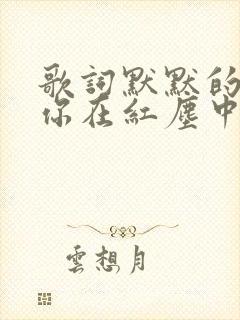 歌詞默默的
你在紅塵中
雲想月